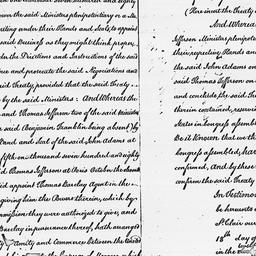 said Ministers plenipotentiary or a
acting under their Hands and Seals to appoint
said Business as they might think proper
the Directions and Instructions of the said
and prosecute the said Negociations and
said Treaty, provided that the said Treaty
by the said Ministers: And Whereas the
and Thomas Jefferson two of the said Ministers
said Benjamin Franklin being absent) by
and Seal of the said John Adams at
fifth one thousand seven hundred and eighty
Thomas Jefferson at Paris October the
did appoint Thomas Barclay Agent in the
giving him the Powers therein, which by
they were authorized to give, and
Barclay in pursuance thereof, hath arranged
Amity and Commerce between the United
(Here insert the Treaty
And Whereas
Jefferson Ministers plenipotentiary
their respective Hands and
the said John Adams on
said Thomas Jefferson on
and conclude the said Treaty
therein contained, reserving
States in Congress assembled
Be it Known that we the
Congress assembled, have
confirmed, and by these
confirm the said Treaty
In Testimony
be hereunto
St. Clair our
18th day of